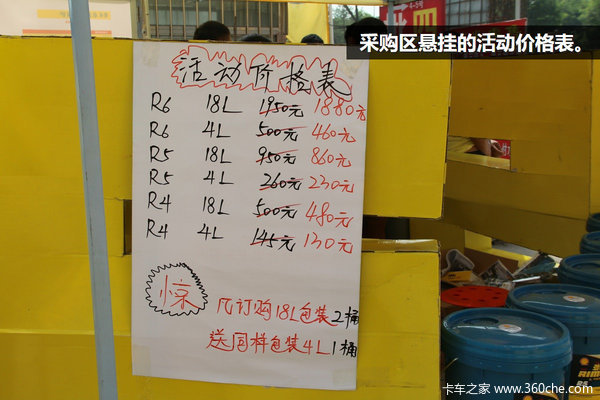 采购区悬挂的活动价格表。
活动价格表
R6 18L 1950元 1880元
R6 4L 500元 460元
R5 18L 950元 860元
R5 4L 260元 230元
R4 18L 500元 480元
R4 4L 145元 130元
惊
凡订购18L包装2桶
送同样包装4L1桶
卡车之家 www.360che.com